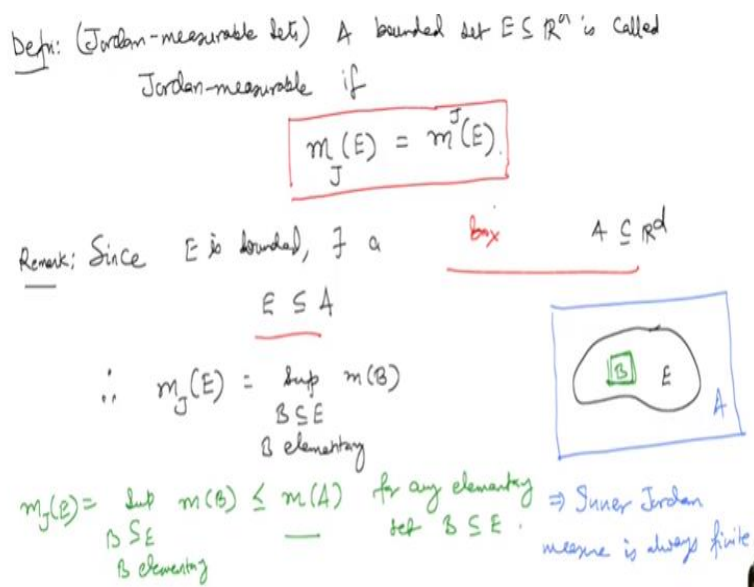 Defn: (Jordan-measurable sets) A bounded set E ⊆ ℝⁿ is called
Jordan-measurable if
m_J(E) = m^J(E).
Remark: Since E is bounded, ∃ a box A ⊆ ℝᵈ
E ⊆ A
∴ m_J(E) = sup m(B)
B ⊆ E
B elementary
B E
A
m_J(E) = sup m(B) ≤ m(A) for any elementary ⇒ Inner Jordan
B ⊆ E set B ⊆ E. measure is always finite
B elementary